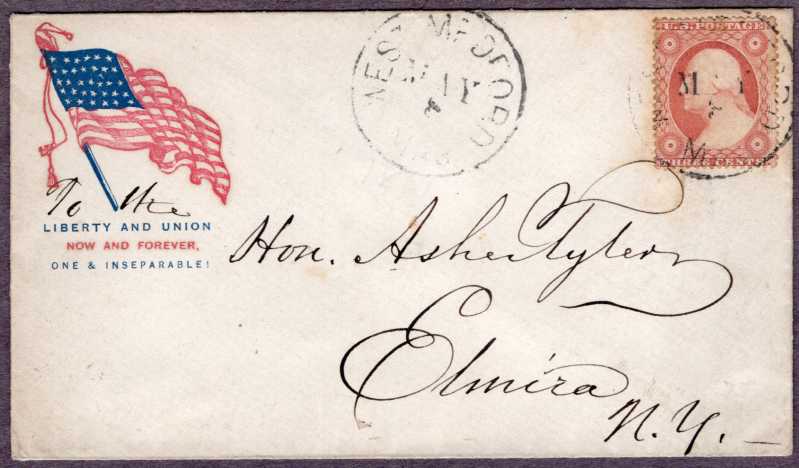 WEST MEDFORD
MAY
U.S. POSTAGE
MAY
THREE CENTS
To the
LIBERTY AND UNION
NOW AND FOREVER,
ONE & INSEPARABLE!
Hon. Asher Tyler
Elmira
N.Y.